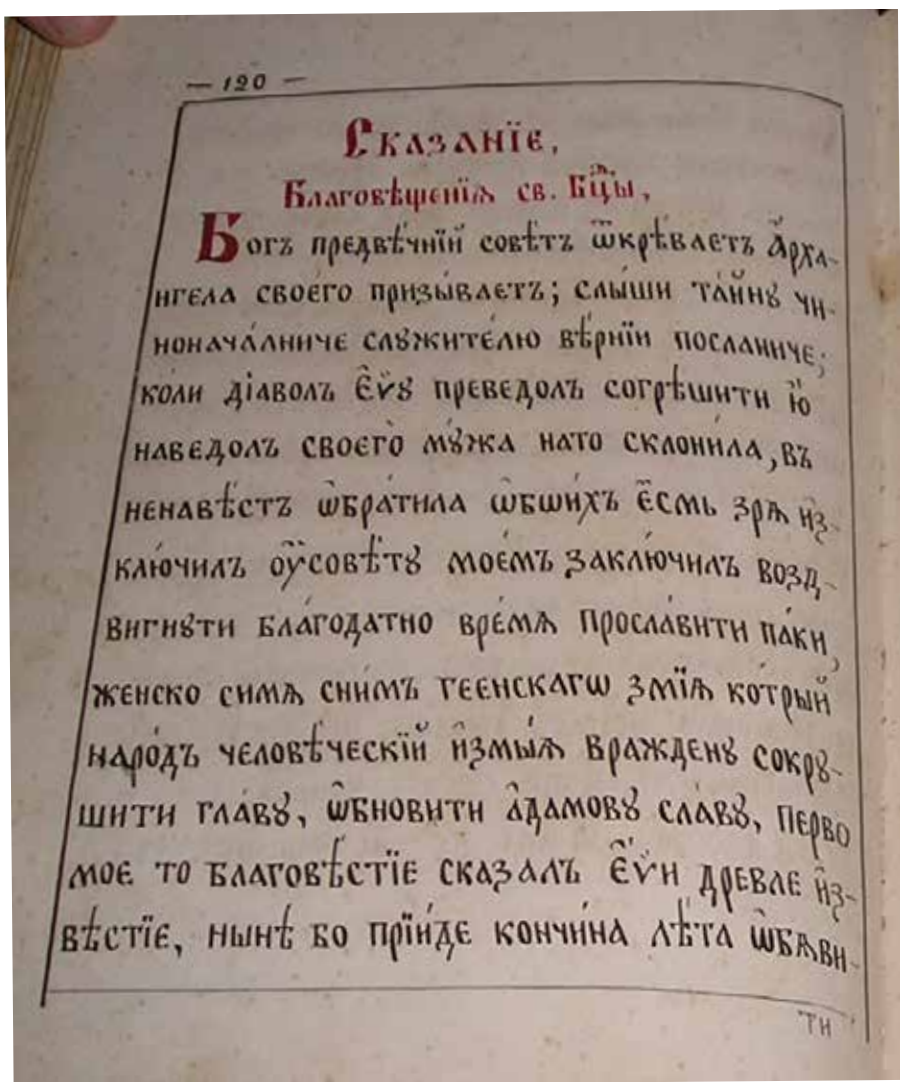 — 120 —
Сказанїе,
Благовѣщенїѧ св. Бц҃ы,
Богъ предвѣ́чнїй совѣ́тъ ѿкрѣва́етъ А҆рха-
нгела своего̀ призыва́етъ; слы́ши та́йнꙋ чи-
нонача́лниче слꙋжи́телю вѣ́рнїи посла́ниче;
коли дїаволъ Є҆ѵꙋ преведолъ согрѣши́ти ю҆̀
наведолъ своего̀ мꙋ́жа нато склони́ла, въ
ненавѣ́стъ ѡ҆бра́тила ѡ҆бши́хъ є҆́смь зрѧ и҆з-
клю́чилъ ᲂу҆совѣ́тꙋ мое́мъ заклю́чилъ возд-
вигнꙋти бла́годатно вре́мѧ просла́вити па́ки,
женско симѧ снимъ геенскагѡ змїѧ ко́трый
наро́дъ человѣ́ческїй и҆змы́ѧ враждєнꙋ сокрꙋ-
шити гла́вꙋ, ѡ҆бновити а҆да́мовꙋ сла́вꙋ, перво
мое то благовѣ́стїе сказалъ Є҆́ѵи древле и҆з-
вѣстїе, нынѣ бо прїи́де кончи́на лѣ́та ѡ҆бѧви-
ти